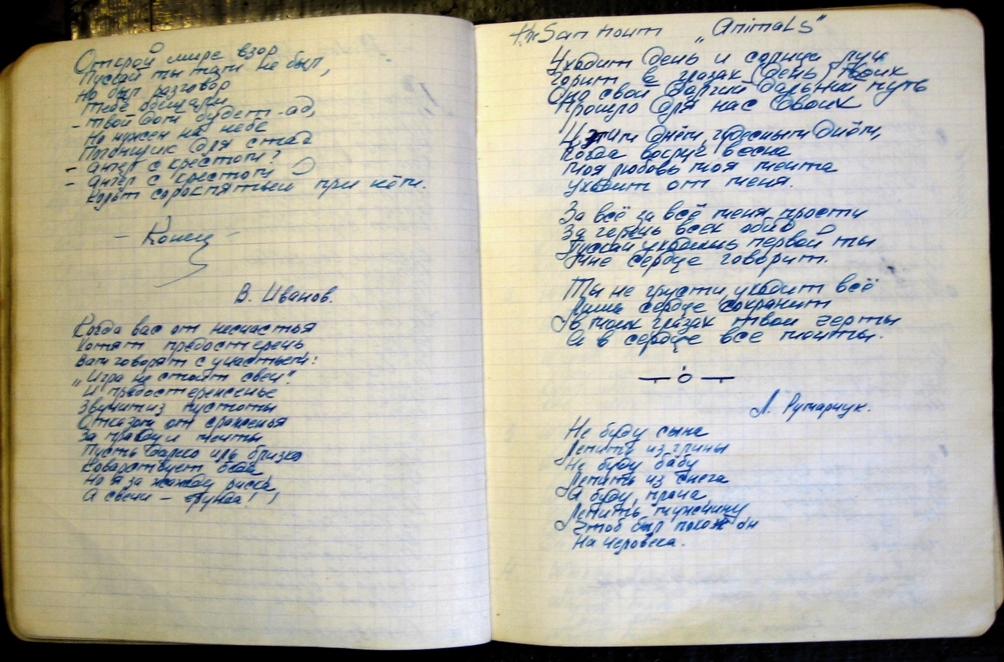 Открой мире взор
Пускай ты там не был,
Но был разговор
Тебе обещали
- Твой дом будет - ад,
Но нужен на небе
Погонщик для стад
- Ангел с крестом?
- Ангел с крестом
при нём.
- Конец -
В. Иванов.
Когда вас от несчастья
Хотят предостеречь
Вам говорят с участьем:
"Игра не стоит свеч".
И предостереженье
Звучит из пустоты
Отказом от сраженья
За правду и мечты
Пусть далеко иль близко
Коварствует беда
Но я за жажду риска
А свечи - ерунда!
"Animals"
Уходит день и солнца луч
Горит в глазах (день) твоих
Оно свой долгий дальний путь
Прошло для нас двоих
И этим днём, чудесным днём,
Когда вокруг весна
Моя любовь моя мечта
Уходит от меня.
За всё за всё меня прости
За горечь всех обид
Пускай уходишь первой ты
Мне сердце говорит.
Ты не грусти, уходит всё
Лишь сердце сохранит
В моих глазах твои черты
А в сердце все мечты.
Л. Рутарчук.
Не буду сына
Лепить из глины
Не буду бабу
Лепить из снега
А буду, плача
Лепить мужчину
Чтоб был похож он
На человека.